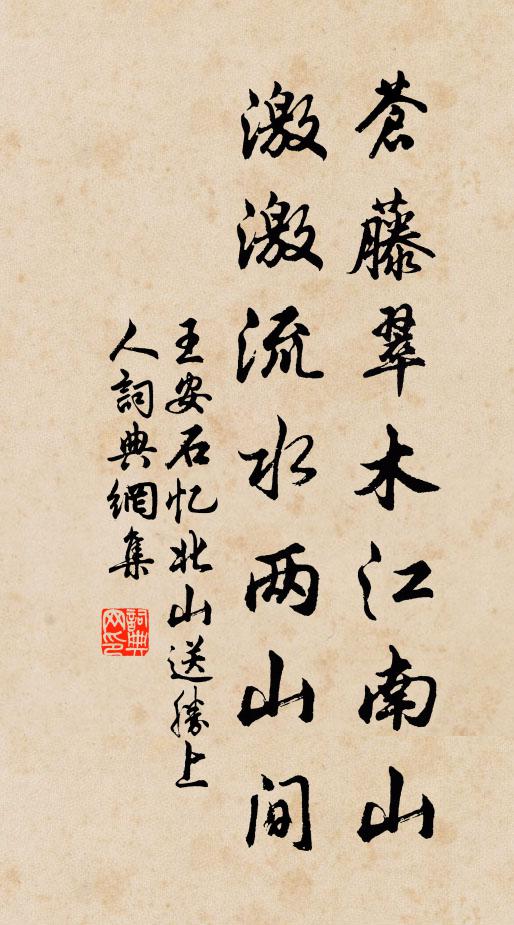 蒼藤翠木江南山
激激流水两山间
王安石忆北山送勝上
人詞典網集
詞典网印